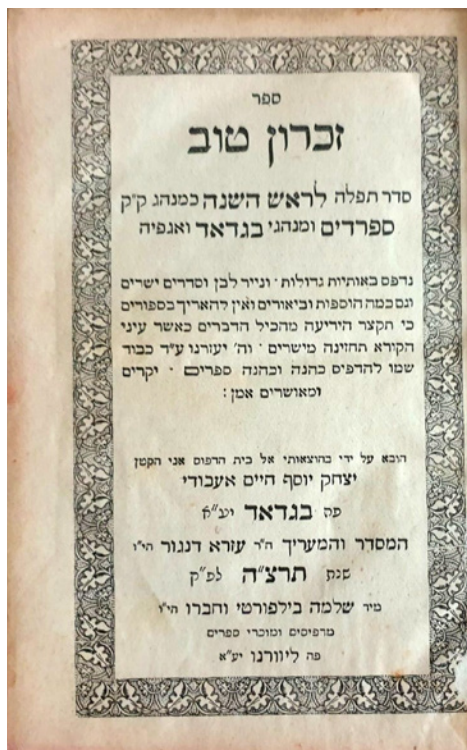 ספר
זכרון טוב
סדר תפלה לראש השנה כמנהג ק״ק
ספרדים ומנהגי בגדאד ואגפיה
נדפס באותיות גדולות ׳ ונייר לבן וסדרים ישרים
וגם כמה הוספות וביאורים ואין להאריך בספורים
כי תקצר היריעה מהכיל הדברים כאשר עיני
הקורא תחזינה מישרים ׳ וה׳ יעזרנו על״ד כבוד
שמו להדפיס כהנה וכהנה ספרים ׳ יקרים
ומאושרים אמן :
הובא על ידי בהוצאותי אל בית הדפוס אני הקטן
יצחק יוסף חיים אעבודי
פה בגדאד יע״א
המסדר והמעריך ה״ר עזרא דנגור הי״ו
שנת תרצ״ה לפ״ק
מיד שלמה בילפורטי וחברו הי״ו
מדפיסים ומוכרי ספרים
פה ליוורנו יע״א